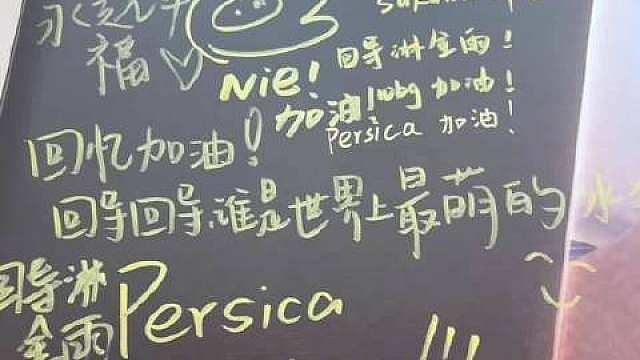 永远幸
福
Nie! 回导淋金雨!
加油! wbg 加油!
Persica 加油!
回忆加油!
回导回导谁是世界上最萌的
回导淋
金雨
Persica
!!!